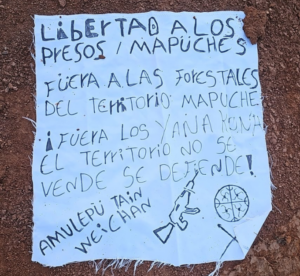 LIBERTAD A LOS
PRESOS / MAPUCHES
FUERA A LAS FORESTALES
DEL TERRITORIO MAPUCHE
¡FUERA LOS YANA KONA
EL TERRITORIO NO SE
VENDE SE DEFIENDE!
AMULEPÜ TAIN
WEICHAN